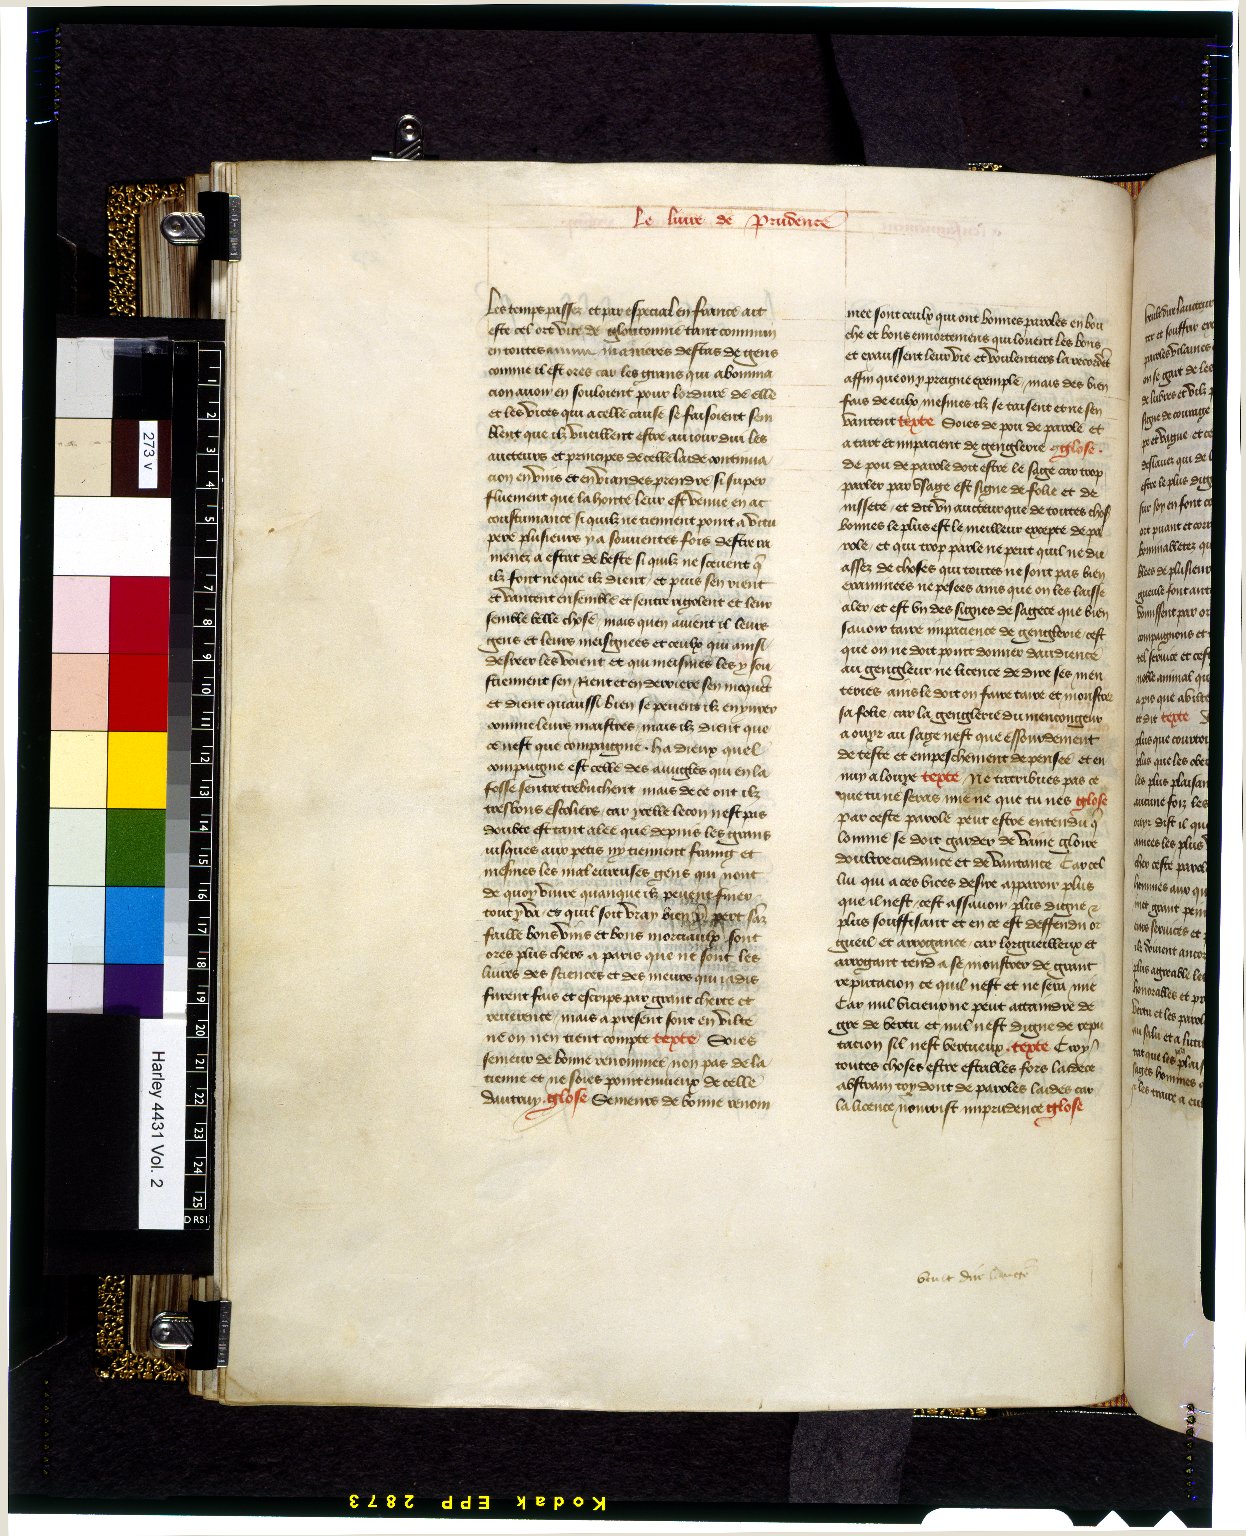 Le livre de Prudence
Les temps passez et par especial en france ait
este cel ort vice de gloutonnie tant commun
en toutes manieres destas de gens
comme il est ores car les grans qui abomina
cion avoir en souloient pour lordure de elle
et les vices qui a celle cause se faisoient sem
blent que ilz vueillent estre au jour dui les
aucteurs et principes de celle laide continua
cion en vins et en viandes prendre si super
fluement que la honte leur est venue en ac
coustumance si quilz ne tiennent point a vitu
pere plusieurs y a souventes fois destre ra
menez a estat de beste si quilz ne scevent q
ilz font ne que ilz dient et puis sen rient
et vantent ensemble et sentre rigolent et leur
semble belle chose mais quen avient il leurs
gens et leurs meisgnees et ceulx qui ainsi
desreer les voient et qui meismes les y sou
stiennent sen rient et en derriere sen moquent
et dient quaussi bien se peuent ilz enyvrer
comme leurs maistres mais ilz dient que
ce nest que compaignie ha dieux quel
compaignie est celle des avugles qui en la
fosse sentre trebuchent mais de ce ont ilz
tresbons escoliers car ycelle lecon nest pas
doubte est tant alee que depuis les grans
jusques aux petis ny tiennent fraing et
mesmes les maleureuses gens qui nont
de quoy vivre quanque ilz peuent finer
tout y va et quil soit vray bien y pert sanz
faille bons vins et bons morceaulx sont
ores plus chers a paris que ne sont les
livres des sciences et des meurs qui jadis
furent fais et escrips par grant cherte et
reverence mais a present sont en vilte
ne on nen tient compte texte Soies
semeur de bonne renommee non pas de la
tienne et ne soies point envieux de celle
dautruy glose Semeurs de bonne renom
mee sont ceulx qui ont bonnes paroles en bou
che et bons ennortemens qui louent les bons
et exaussent leur vie et voulentiers la recordent
affin que on y preigne exemple mais des bien
fais de eulx mesmes ilz se taisent et ne sen
vantent texte Soies de pou de parole et
a tart et impacient de genglerie glose
de pou de parole doit estre le sage car trop
parler par usage est signe de folie et de
nissete et dit un aucteur que de toutes choses
bonnes le plus est le meilleur excepte de pa
role et qui trop parle ne peut quil ne die
assez de choses qui toutes ne sont pas bien
examinees ne pesees ains que on les laisse
aler et est un des signes de sagece que bien
savoir taire impacience de genglerie cest
que on ne doit point donner daudience
au gengleur ne licence de dire ses men
teries ains le doit on faire taire et monstrer
sa folie car la genglerie du mencongeur
a ouyr au sage nest que essourdement
de teste et empeschement de pensee et en
nuy a louye texte Ne tatribues pas ce
que tu ne seras mie ne que tu nes glose
par ceste parole peut estre entendu q
lomme se doit garder de vaine gloire
doultrecuidance et de vantance Car cel
lui qui a ces vices desire apparoir plus
que il nest cest assavoir plus digne et
plus souffisant et en ce est deffendu or
gueil et arrogance car lorgueilleux et
arrogant tend a se monstrer de grant
reputacion ce quil nest et ne sera mie
Car nul vicieux ne peut attaindre de
gre de vertu et nul nest digne de repu
tacion sil nest vertueux texte Croy
toutes choses estre estables fors laidece
abstrain toy dont de paroles laides car
la licence nourrist imprudence glose
273 v
Harley 4431 Vol. 2
1
2
3
4
5
7
8
9
10
11
12
13
14
15
16
17
18
19
20
21
22
23
24
25
Kodak EPP 2873